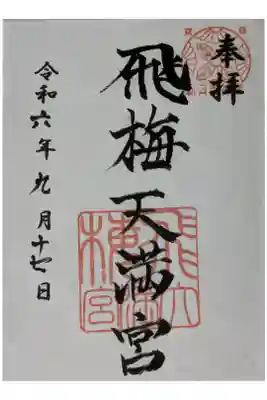 奉拝
飛梅天満宮
令和六年九月十七日